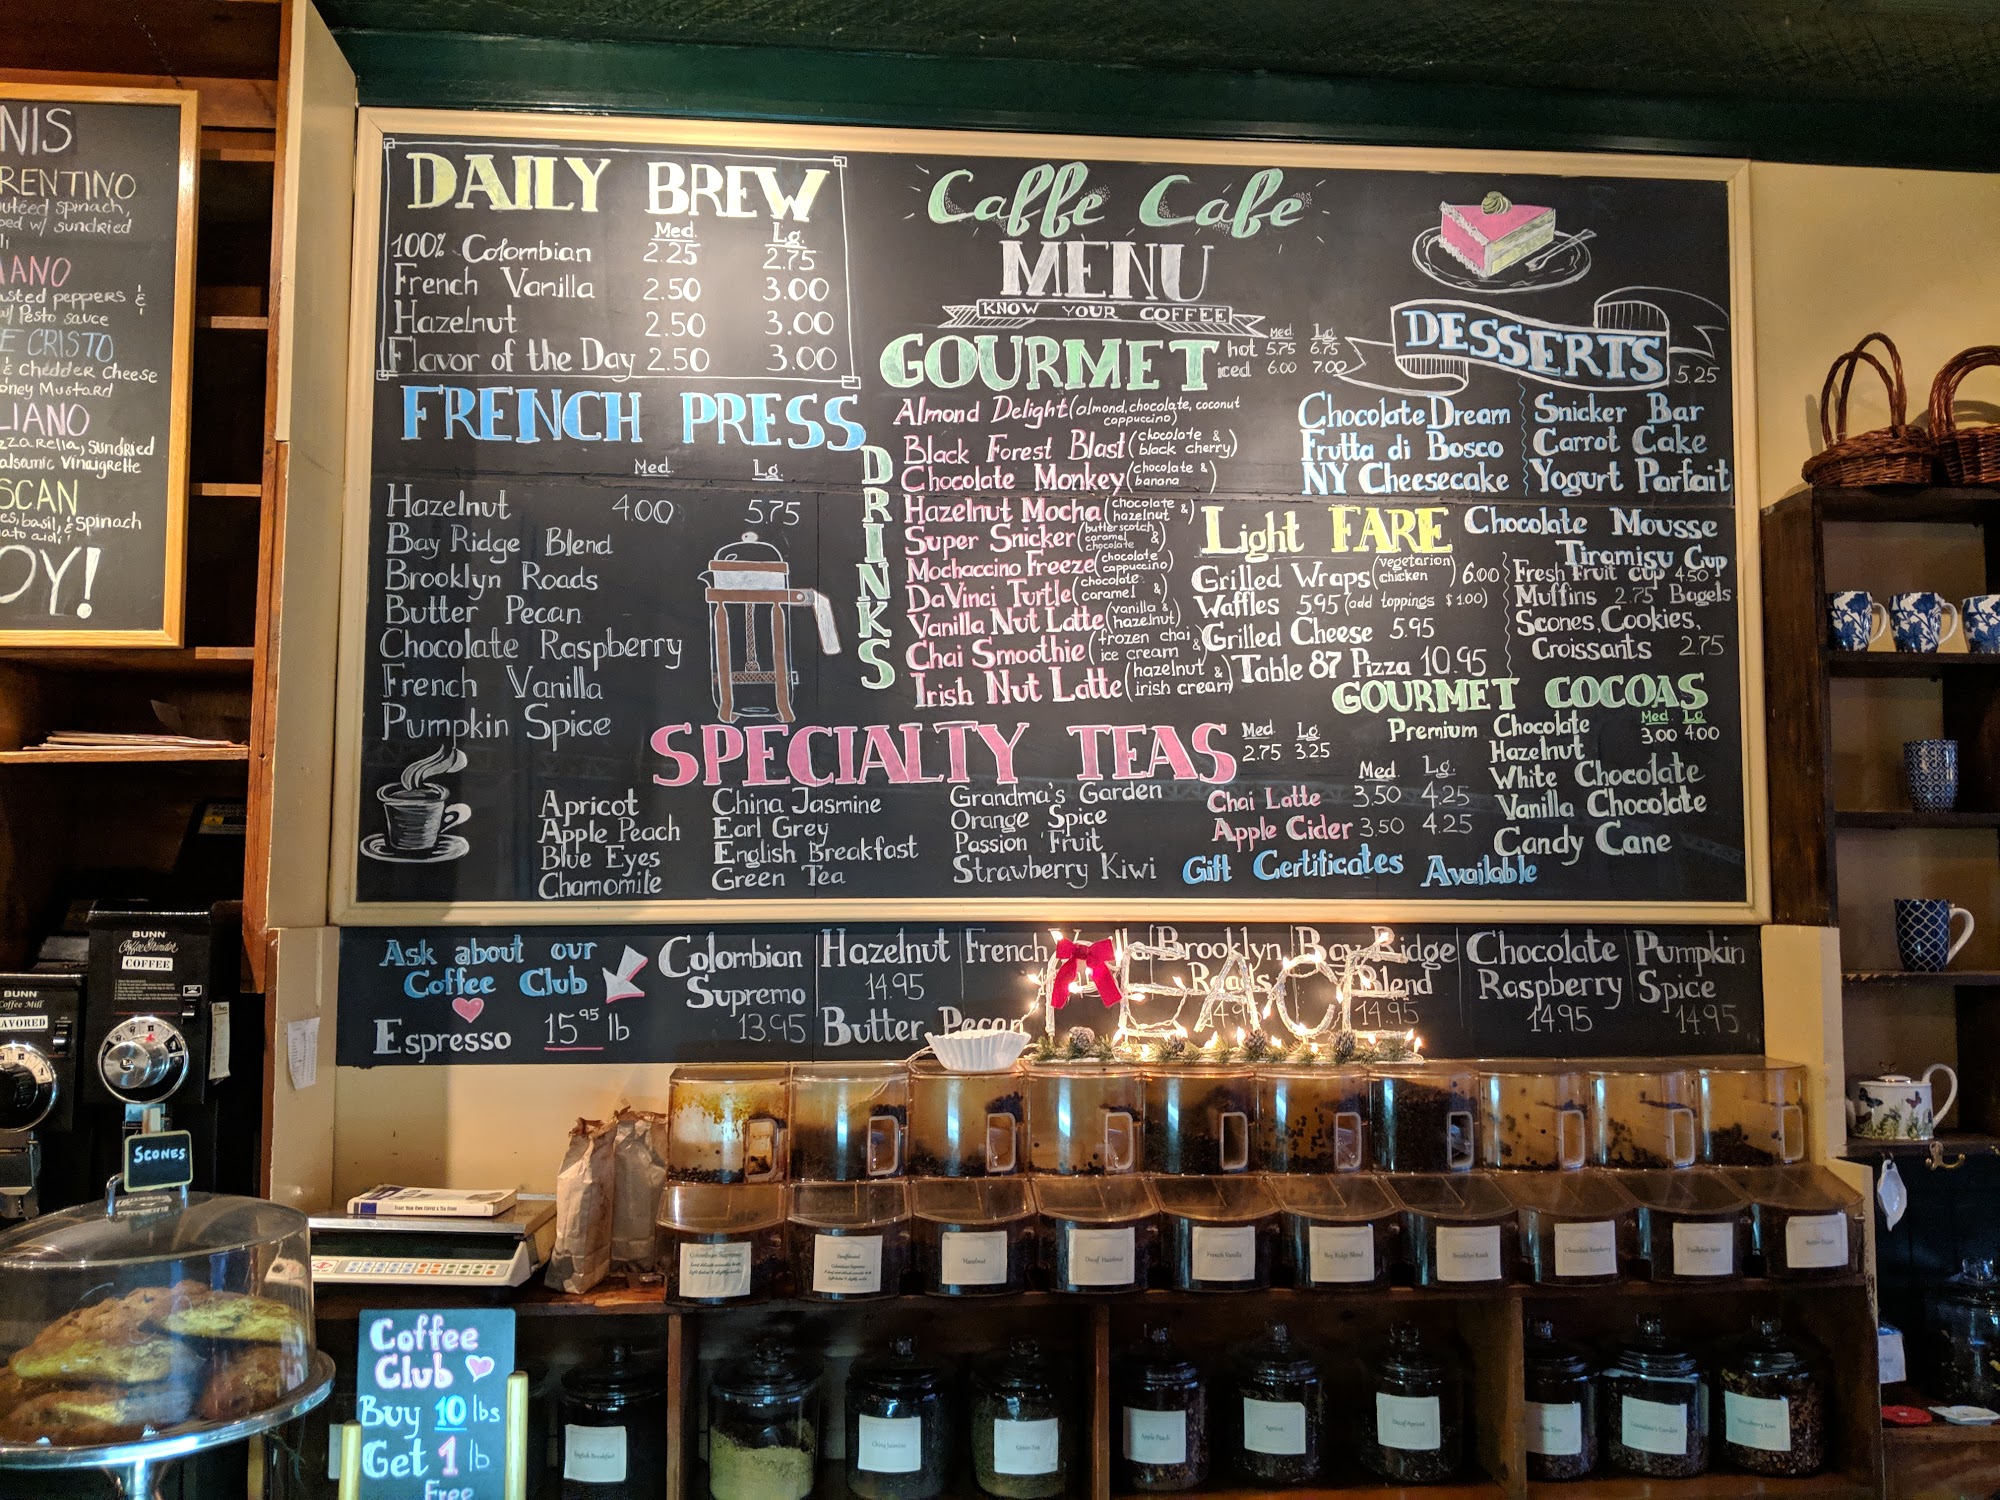 NIS
RENTINO
uteed spinach,
ped w/ sundried
IANO
asted peppers &
w/ Pesto sauce
E CRISTO
& Chedder Cheese
oney Mustard
LIANO
zzarella, sundried
alsamic Vinaigrette
SCAN
es, basil, & spinach
ato aioli
OY!
DAILY BREW
Med. Lg.
100% Colombian 2.25 2.75
French Vanilla 2.50 3.00
Hazelnut 2.50 3.00
Flavor of the Day 2.50 3.00
FRENCH PRESS
Med. Lg.
Hazelnut 4.00 5.75
Bay Ridge Blend
Brooklyn Roads
Butter Pecan
Chocolate Raspberry
French Vanilla
Pumpkin Spice
Caffe Cafe
MENU
KNOW YOUR COFFEE
GOURMET
DRINKS
Med. Lg.
hot 5.75 6.75
iced 6.00 7.00
Almond Delight (almond, chocolate, coconut cappuccino)
Black Forest Blast (chocolate & black cherry)
Chocolate Monkey (chocolate & banana)
Hazelnut Mocha (chocolate & hazelnut)
Super Snicker (butterscotch caramel & chocolate)
Mochaccino Freeze (chocolate cappuccino)
DaVinci Turtle (chocolate & caramel)
Vanilla Nut Latte (vanilla & hazelnut)
Chai Smoothie (frozen chai & ice cream)
Irish Nut Latte (hazelnut & irish cream)
DESSERTS 5.25
Chocolate Dream
Frutta di Bosco
NY Cheesecake
Snicker Bar
Carrot Cake
Yogurt Parfait
Chocolate Mousse
Tiramisu Cup
Fresh Fruit cup 4.50
Muffins 2.75 Bagels
Scones, Cookies,
Croissants 2.75
Light FARE
Grilled Wraps (vegetarian chicken) 6.00
Waffles 5.95 (add toppings $1.00)
Grilled Cheese 5.95
Table 87 Pizza 10.95
GOURMET COCOAS
Med. Lg.
Premium Chocolate 3.00 4.00
Hazelnut
White Chocolate
Vanilla Chocolate
Candy Cane
SPECIALTY TEAS
Med. Lg.
2.75 3.25
Apricot
Apple Peach
Blue Eyes
Chamomile
China Jasmine
Earl Grey
English Breakfast
Green Tea
Grandma's Garden
Orange Spice
Passion Fruit
Strawberry Kiwi
Med. Lg.
Chai Latte 3.50 4.25
Apple Cider 3.50 4.25
Gift Certificates Available
Ask about our
Coffee Club
Espresso 15.95 lb
Colombian
Supremo
13.95
Hazelnut
14.95
Butter Pecan
French
Brooklyn
Roads
Bay Ridge
Blend
14.95
Chocolate
Raspberry
14.95
Pumpkin
Spice
14.95
PEACE
BUNN
Coffee Grinder
COFFEE
BUNN
Coffee Mill
AVORED
SCONES
Colombian Supremo
Hazelnut
Decaf Hazelnut
French Vanilla
Bay Ridge Blend
Brooklyn Roads
Chocolate Raspberry
Pumpkin Spice
Butter Pecan
Coffee
Club
Buy 10 lbs
Get 1 lb
Free
English Breakfast
China Jasmine
Green Tea
Apple Peach
Apricot
Decaf Apricot
Blue Eyes
Grandma's Garden
Strawberry Kiwi